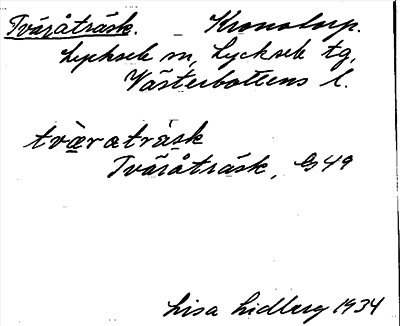 Tväråträsk. - Kronotorp.
Lycksele sn, Lycksele tg,
Västerbottens l.
tvàratràsk
Tväråträsk, GS 49
Lisa Lidberg 1934